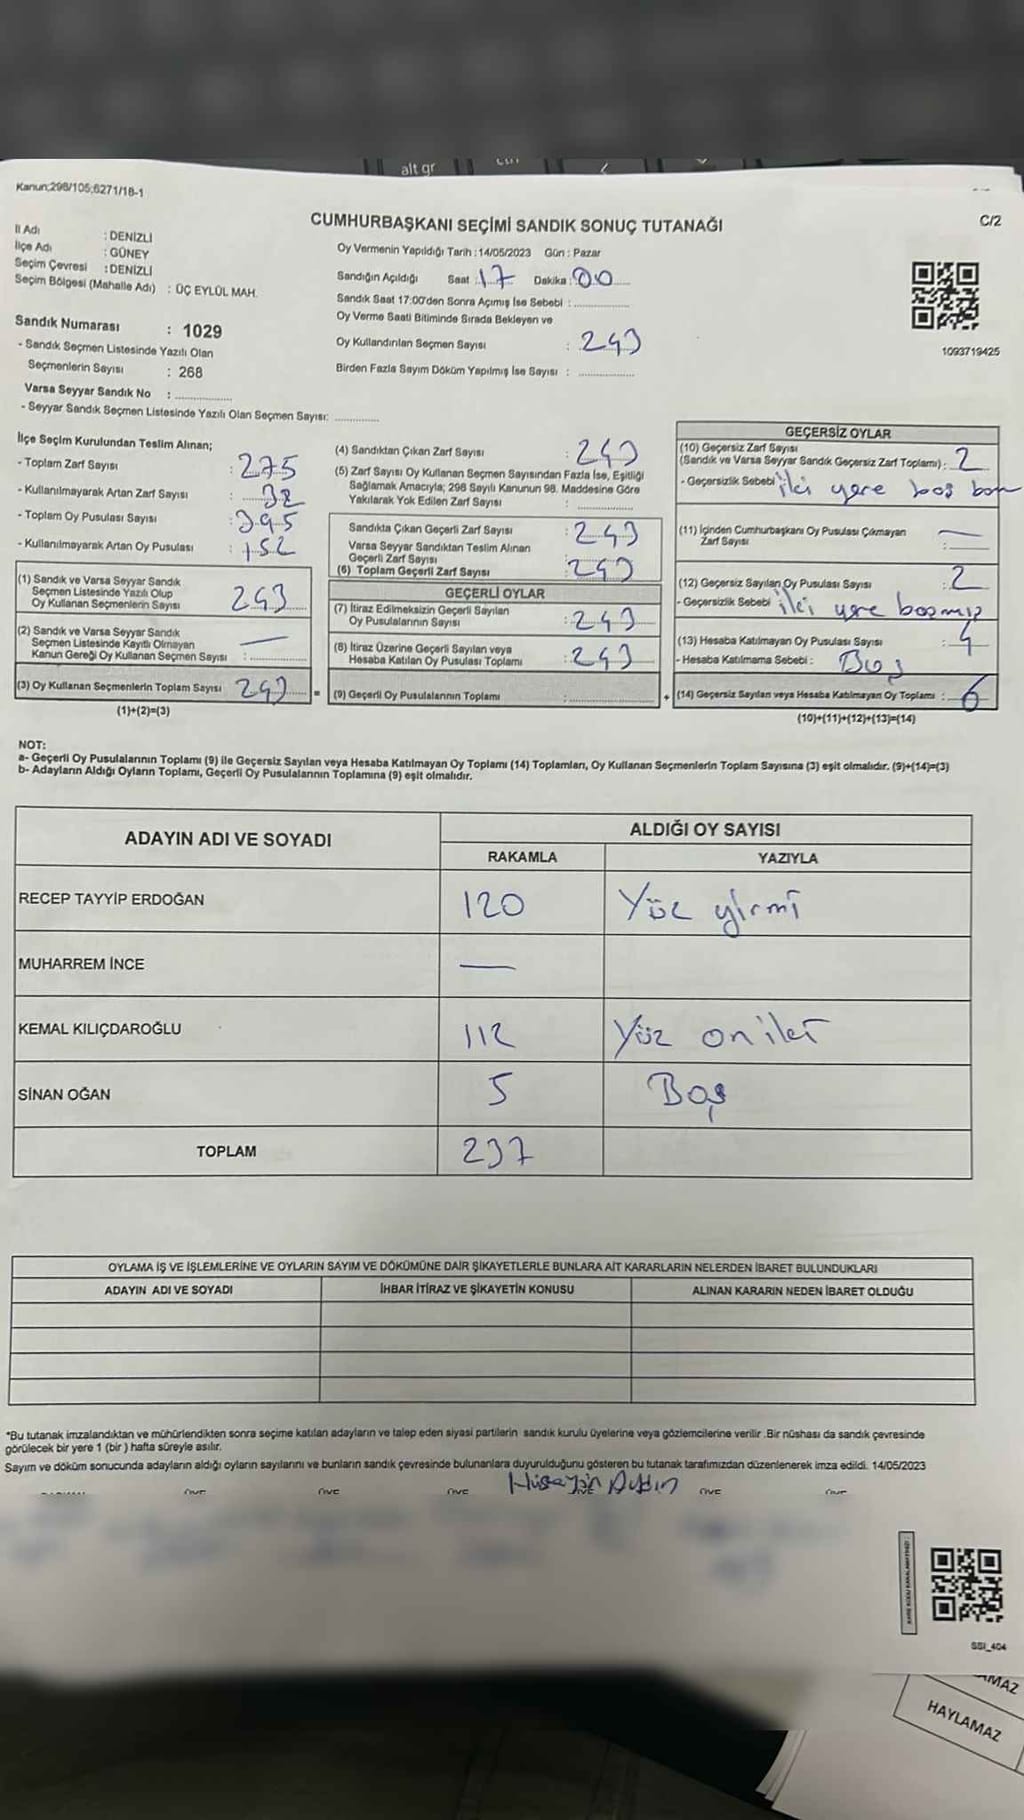 alt gr
Kanun;298/105;6271/18-1
CUMHURBAŞKANI SEÇİMİ SANDIK SONUÇ TUTANAĞI
C/2
İl Adı : DENİZLİ
İlçe Adı : GÜNEY
Seçim Çevresi : DENİZLİ
Seçim Bölgesi (Mahalle Adı) : ÜÇ EYLÜL MAH.
Sandık Numarası : 1029
- Sandık Seçmen Listesinde Yazılı Olan
Seçmenlerin Sayısı : 268
Varsa Seyyar Sandık No :
- Seyyar Sandık Seçmen Listesinde Yazılı Olan Seçmen Sayısı:
Oy Vermenin Yapıldığı Tarih : 14/05/2023 Gün : Pazar
Sandığın Açıldığı Saat : 17 Dakika : 00
Sandık Saat 17:00'den Sonra Açımış İse Sebebi :
Oy Verme Saati Bitiminde Sırada Bekleyen ve
Oy Kullandırılan Seçmen Sayısı : 243
Birden Fazla Sayım Döküm Yapılmış İse Sayısı :
1093719425
İlçe Seçim Kurulundan Teslim Alınan;
- Toplam Zarf Sayısı : 275
- Kullanılmayarak Artan Zarf Sayısı : 32
- Toplam Oy Pusulası Sayısı : 395
- Kullanılmayarak Artan Oy Pusulası : 152
(1) Sandık ve Varsa Seyyar Sandık
Seçmen Listesinde Yazılı Olup
Oy Kullanan Seçmenlerin Sayısı 243
(2) Sandık ve Varsa Seyyar Sandık
Seçmen Listesinde Kayıtlı Olmayan
Kanun Gereği Oy Kullanan Seçmen Sayısı : —
(3) Oy Kullanan Seçmenlerin Toplam Sayısı 243 =
(1)+(2)=(3)
(4) Sandıktan Çıkan Zarf Sayısı : 243
(5) Zarf Sayısı Oy Kullanan Seçmen Sayısından Fazla İse, Eşitliği
Sağlamak Amacıyla; 298 Sayılı Kanunun 98. Maddesine Göre
Yakılarak Yok Edilen Zarf Sayısı :
Sandıkta Çıkan Geçerli Zarf Sayısı : 243
Varsa Seyyar Sandıktan Teslim Alınan
Geçerli Zarf Sayısı
(6) Toplam Geçerli Zarf Sayısı : 243
GEÇERLİ OYLAR
(7) İtiraz Edilmeksizin Geçerli Sayılan
Oy Pusulalarının Sayısı : 243
(8) İtiraz Üzerine Geçerli Sayılan veya
Hesaba Katılan Oy Pusulası Toplamı : 243
(9) Geçerli Oy Pusulalarının Toplamı : +
GEÇERSİZ OYLAR
(10) Geçersiz Zarf Sayısı
(Sandık ve Varsa Seyyar Sandık Geçersiz Zarf Toplamı) : 2
- Geçersizlik Sebebi : iki yere boş
(11) İçinden Cumhurbaşkanı Oy Pusulası Çıkmayan
Zarf Sayısı : —
(12) Geçersiz Sayılan Oy Pusulası Sayısı : 2
- Geçersizlik Sebebi : iki yere
(13) Hesaba Katılmayan Oy Pusulası Sayısı : 4
- Hesaba Katılmama Sebebi : Boş
(14) Geçersiz Sayılan veya Hesaba Katılmayan Oy Toplamı : 6
(10)+(11)+(12)+(13)=(14)
NOT:
a- Geçerli Oy Pusulalarının Toplamı (9) ile Geçersiz Sayılan veya Hesaba Katılmayan Oy Toplamı (14) Toplamları, Oy Kullanan Seçmenlerin Toplam Sayısına (3) eşit olmalıdır. (9)+(14)=(3)
b- Adayların Aldığı Oyların Toplamı, Geçerli Oy Pusulalarının Toplamına (9) eşit olmalıdır.
ADAYIN ADI VE SOYADI ALDIĞI OY SAYISI
RAKAMLA YAZIYLA
RECEP TAYYİP ERDOĞAN 120 Yüz yirmi
MUHARREM İNCE —
KEMAL KILIÇDAROĞLU 112 Yüz oniki
SİNAN OĞAN 5 Beş
TOPLAM 237
OYLAMA İŞ VE İŞLEMLERİNE VE OYLARIN SAYIM VE DÖKÜMÜNE DAİR ŞİKAYETLERLE BUNLARA AİT KARARLARIN NELERDEN İBARET BULUNDUKLARI
ADAYIN ADI VE SOYADI İHBAR İTİRAZ VE ŞİKAYETİN KONUSU ALINAN KARARIN NEDEN İBARET OLDUĞU
*Bu tutanak imzalandıktan ve mühürlendikten sonra seçime katılan adayların ve talep eden siyasi partilerin sandık kurulu üyelerine veya gözlemcilerine verilir .Bir nüshası da sandık çevresinde
görülecek bir yere 1 (bir ) hafta süreyle asılır.
Sayım ve döküm sonucunda adayların aldığı oyların sayılarını ve bunların sandık çevresinde bulunanlara duyurulduğunu gösteren bu tutanak tarafımızdan düzenlenerek imza edildi. 14/05/2023
Hüseyin Aydın
SSI_404
HAYLAMAZ